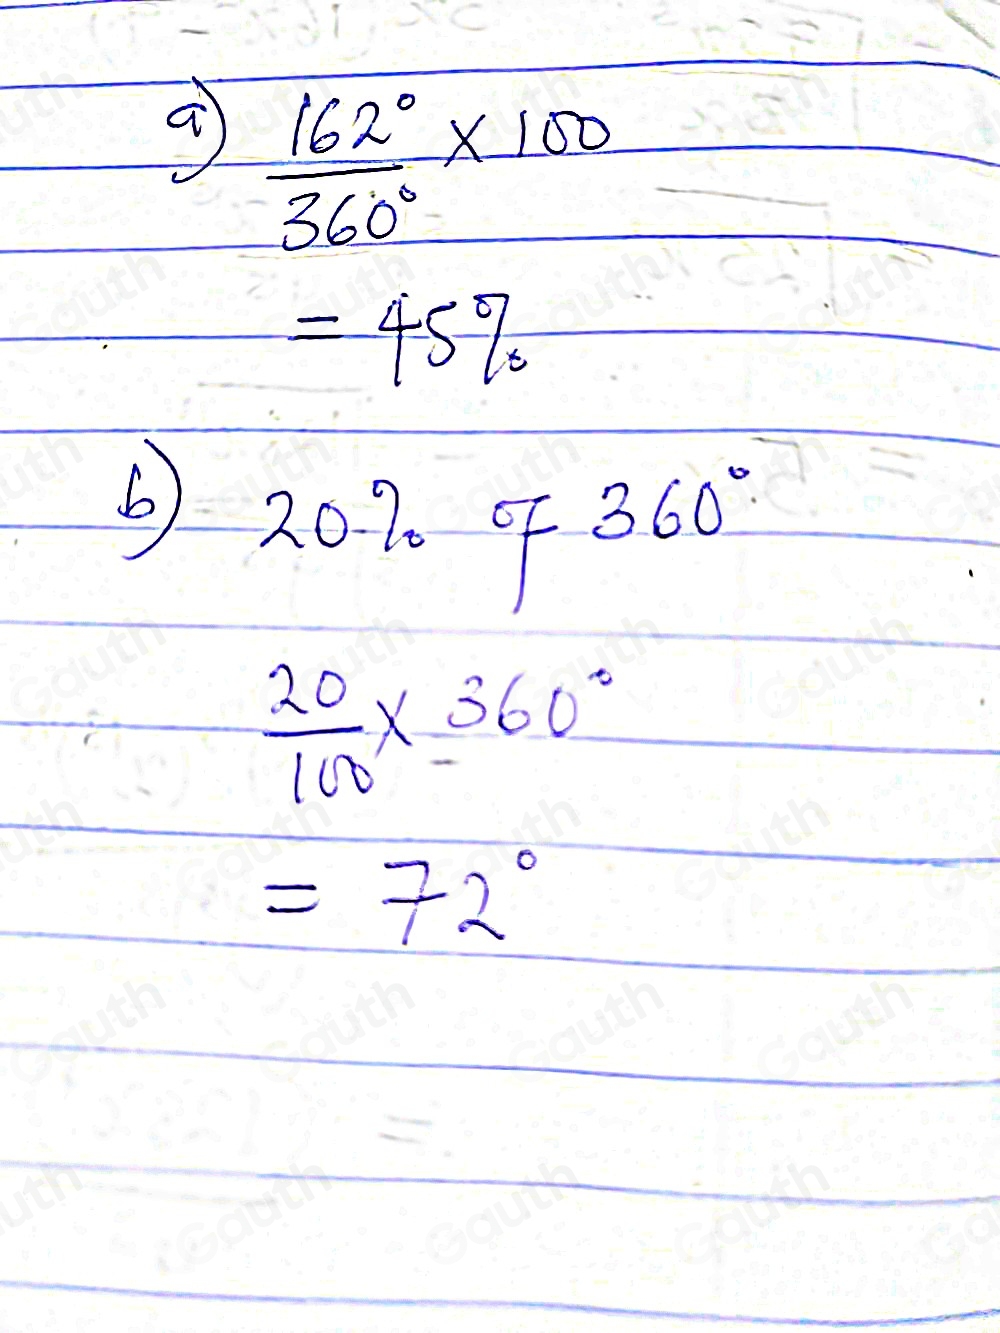 a) 162°/360° × 100
= 45%
b) 20% of 360°
20/100 × 360°
= 72°